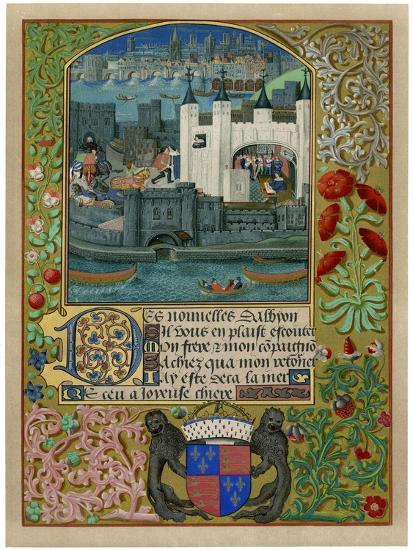 Des nouuelles Dalbyon
Sil vous en plaist escouter
Mon frere & mon cōpaignō
Sachez qua mon retorner
Jay este deca la mer
Receu a Joyeuse chiere